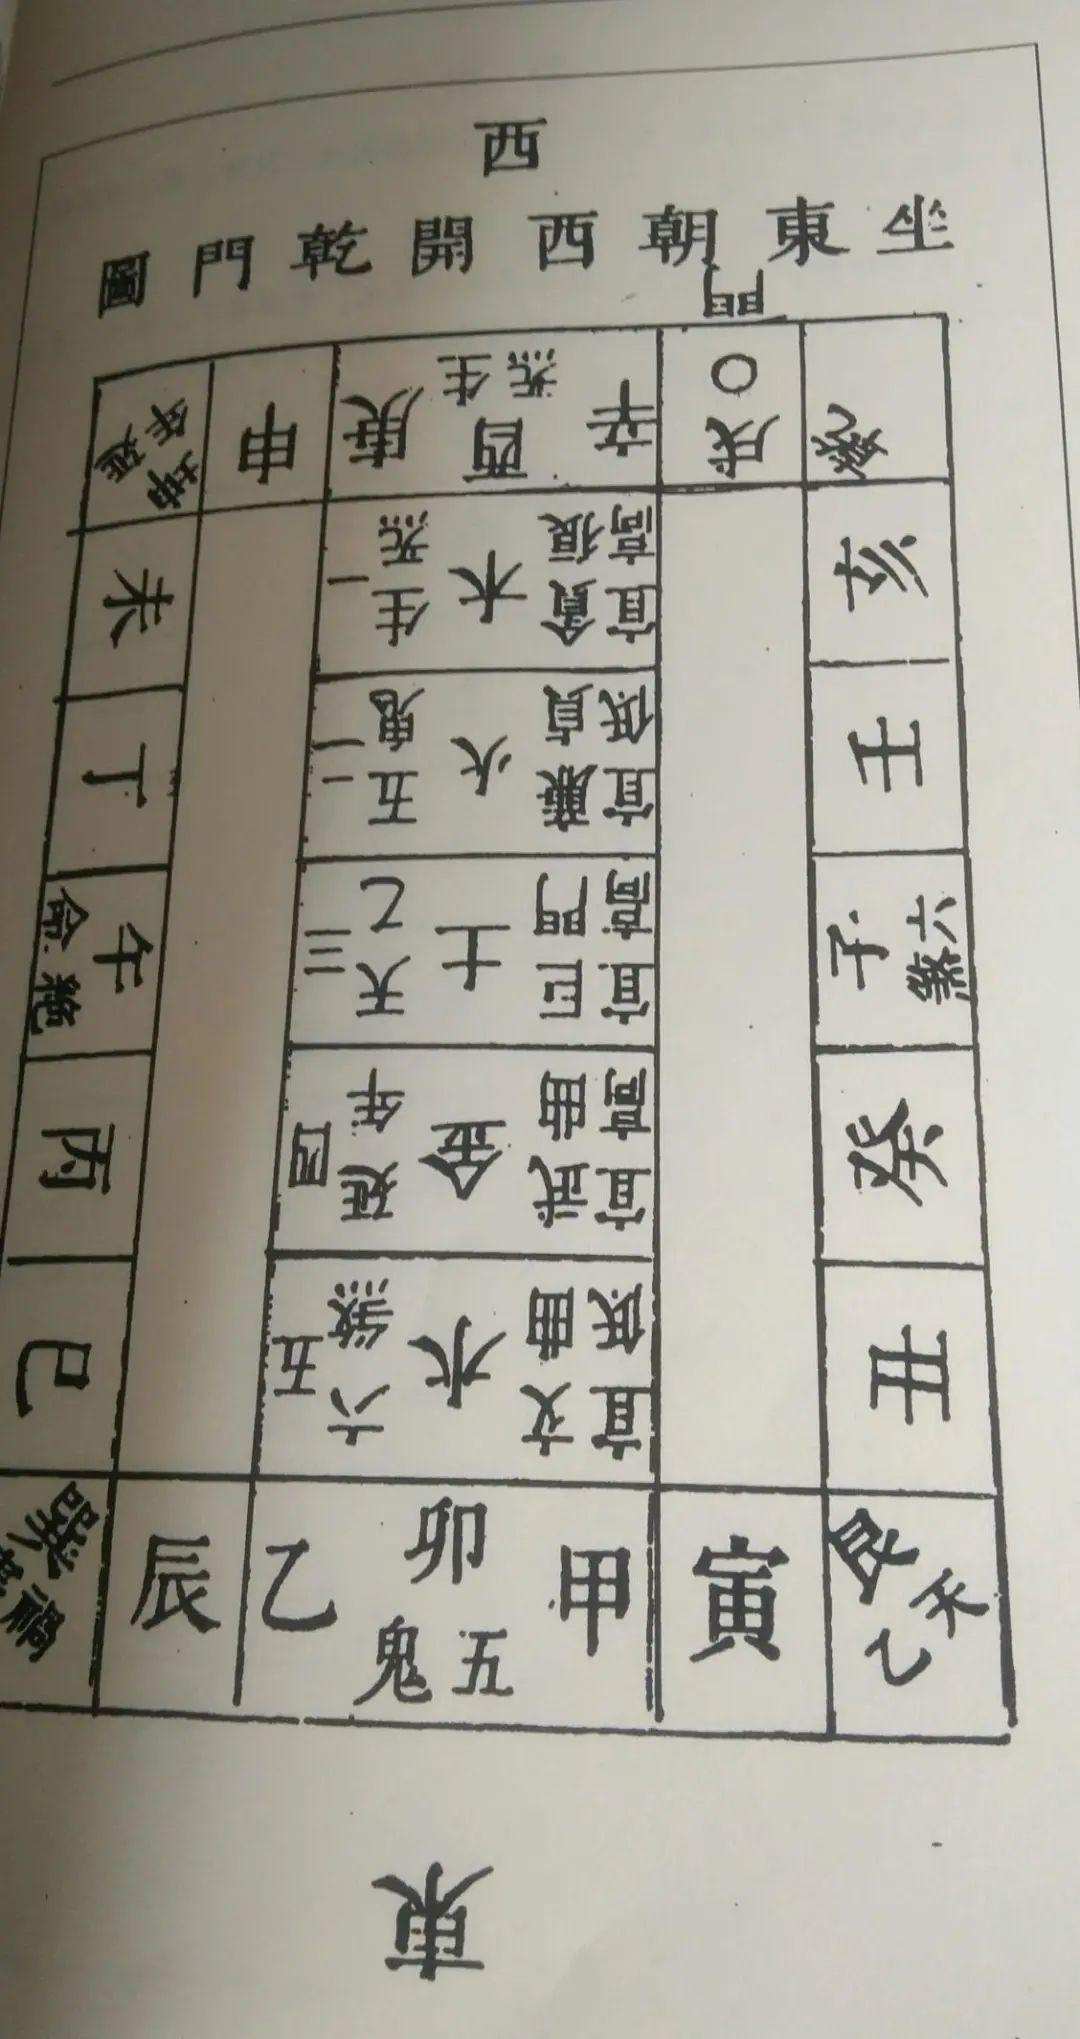 西
坐東朝西開乾門圖
門
乾
○
戌
生炁
辛
酉
庚
申
坤
延年
宜高
貪狼
木
生炁
一
宜低
廉貞
火
五鬼
二
宜高
巨門
土
天乙
三
宜高
武曲
金
延年
四
宜低
文曲
水
六煞
五
亥
壬
子
六煞
癸
丑
艮
天乙
寅
甲
卯
乙
五鬼
辰
未
丁
午
絶命
丙
巳
巽
禍
東